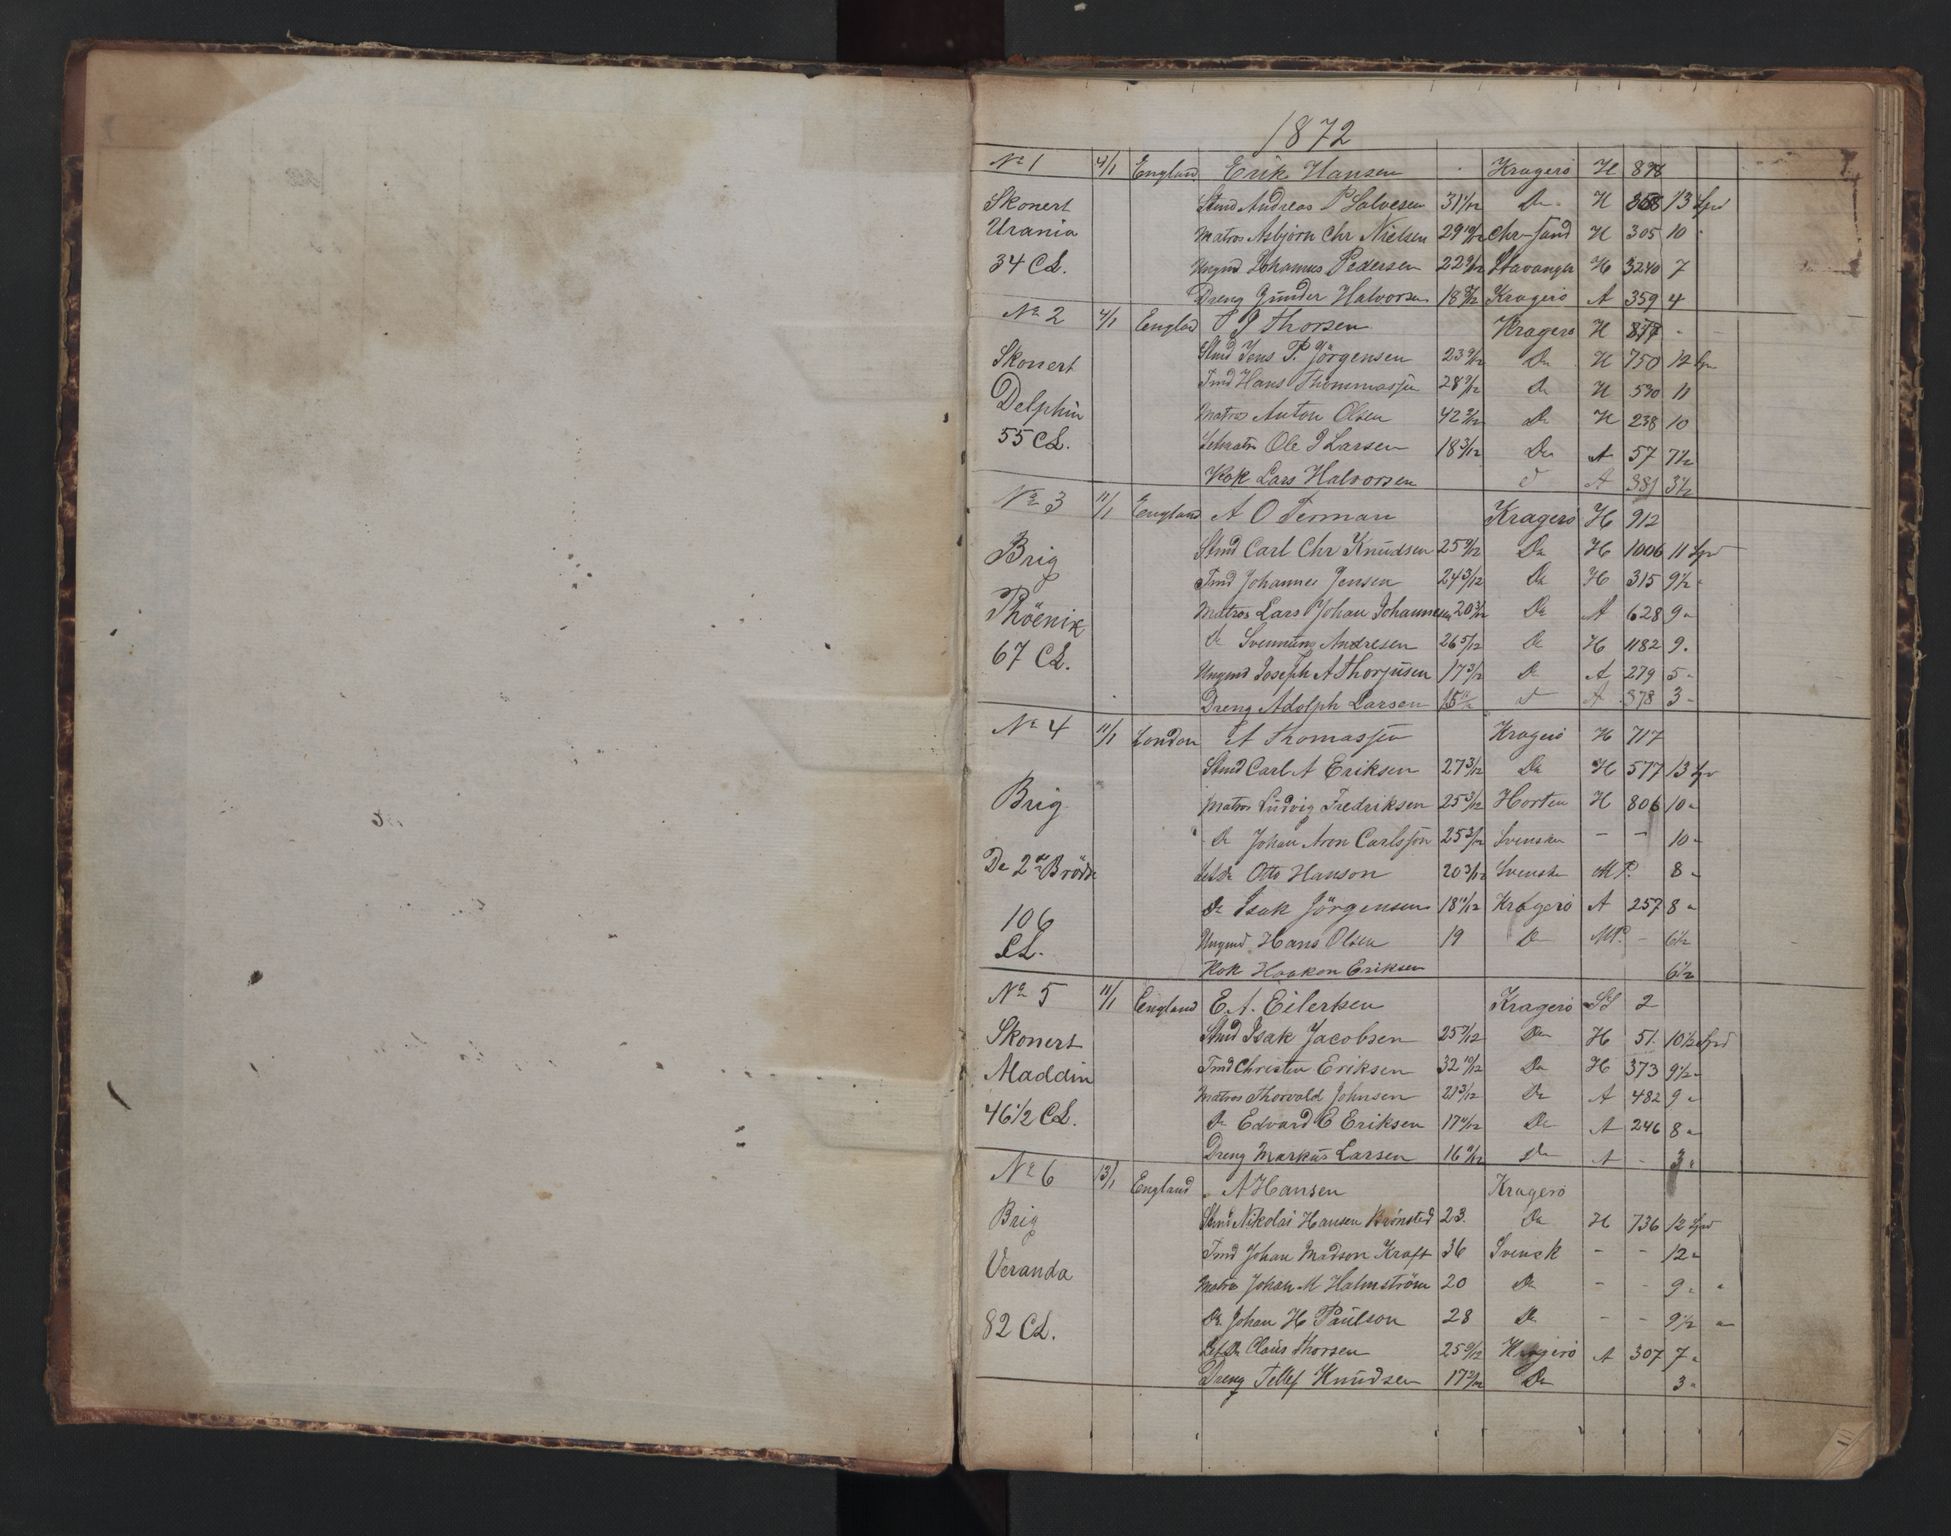 1872
No 1 4/1 England Erik Hansen Kragerö H 898
Skonert Stmd Andreas P Salvesen 31 1/12 Do H 368 13 Spd
Urania Matros Asbjörn Chr Nielsen 29 10/12 Chr-sand H 305 10
34 CL. Ungmd Johannes Pedersen Stavanger H 3240 7
Dreng Gunder Halvorsen 18 Kragerö A 359 4
No 2 4/1 England Thorsen Kragerö H
Skonert Stmd Jens P. Jörgensen 23 9/12 Do H 750 12 Spd
Delphin Tmd Hans Thommassen 28 9/12 Do H 530 11
55 CL. Matros Anton Olsen 42 Do H 238 10
Ole J Larsen 18 3/12 Do A 57 7 1/2
Kok Lars Halvorsen d A 381 3 1/2
No 3 11/1 England A O Terman Kragerö H 912
Brig Stmd Carl Chr Knudsen 25 9/12 Do H 1006 11 Spd
Phöenix Tmd Johannes Jensen 24 3/12 Do H 315 9 1/2 "
67 CL. Matros Lars Johan Johannesen 20 3/12 Do A 628 9 "
Do Svennung Andresen 26 5/12 Do H 1182 9 "
Ungmd Joseph A Thorjusen 17 3/12 Do A 279 5 "
Dreng Adolph Larsen 15 11/12 d A 378 3 "
No 4 11/1 London A Thomassen Kragerö H 717
Stmd Carl A Eriksen 27 3/12 Do H 577 13 Spd
Brig Matros Ludvig Fredriksen 25 3/12 Horten H 806 10 "
Do Johan Aron Carlsson 25 3/12 Svensk - - 10 "
De 2de Brödre Letdo Otto Hanson 20 3/12 Svensk MP. 8 "
106 CL. Do Isak Jörgensen 18 11/12 Kragerö A 257 8 "
Ungmd Hans Olsen 19 Do MP. - 6 1/2
Kok Haakon Eriksen 6 1/2
No 5 11/1 England E. A. Eilertsen Kragerö SS 2
Skonert Stmd Isak Jacobsen 25 9/12 Do H 51. 10 1/2 Spd
Aladdin Tmd Christen Eriksen 32 10/12 Do H 373 9 1/2 "
46 1/2 CL. Matros Thorvald Johnsen 21 3/12 Do A 482 9 "
Do Edvard E Eriksen 17 11/12 Do A 246 8 "
Dreng Markus Larsen 16 Do A - 3 "
No 6 13/1 England A Hansen Kragerö
Brig Stmd Nikolai Hansen Brönsted 23 Do H 736 12 Spd
Veranda Tmd Johan Madson Kraft 36 Svensk - - 12 "
Matros Johan M Halmström 20 Do - - 9 " "
82 CL. Do Johan H Paulson 28 Do - - 9 1/2 "
Letdo Claus Thorsen 25 Kragerö A 307 7 "
Dreng Tellef Knudsen 17 Do 3 "